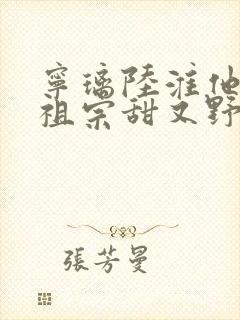 寧璃陸淮他
祖宗甜又野
張芳曼